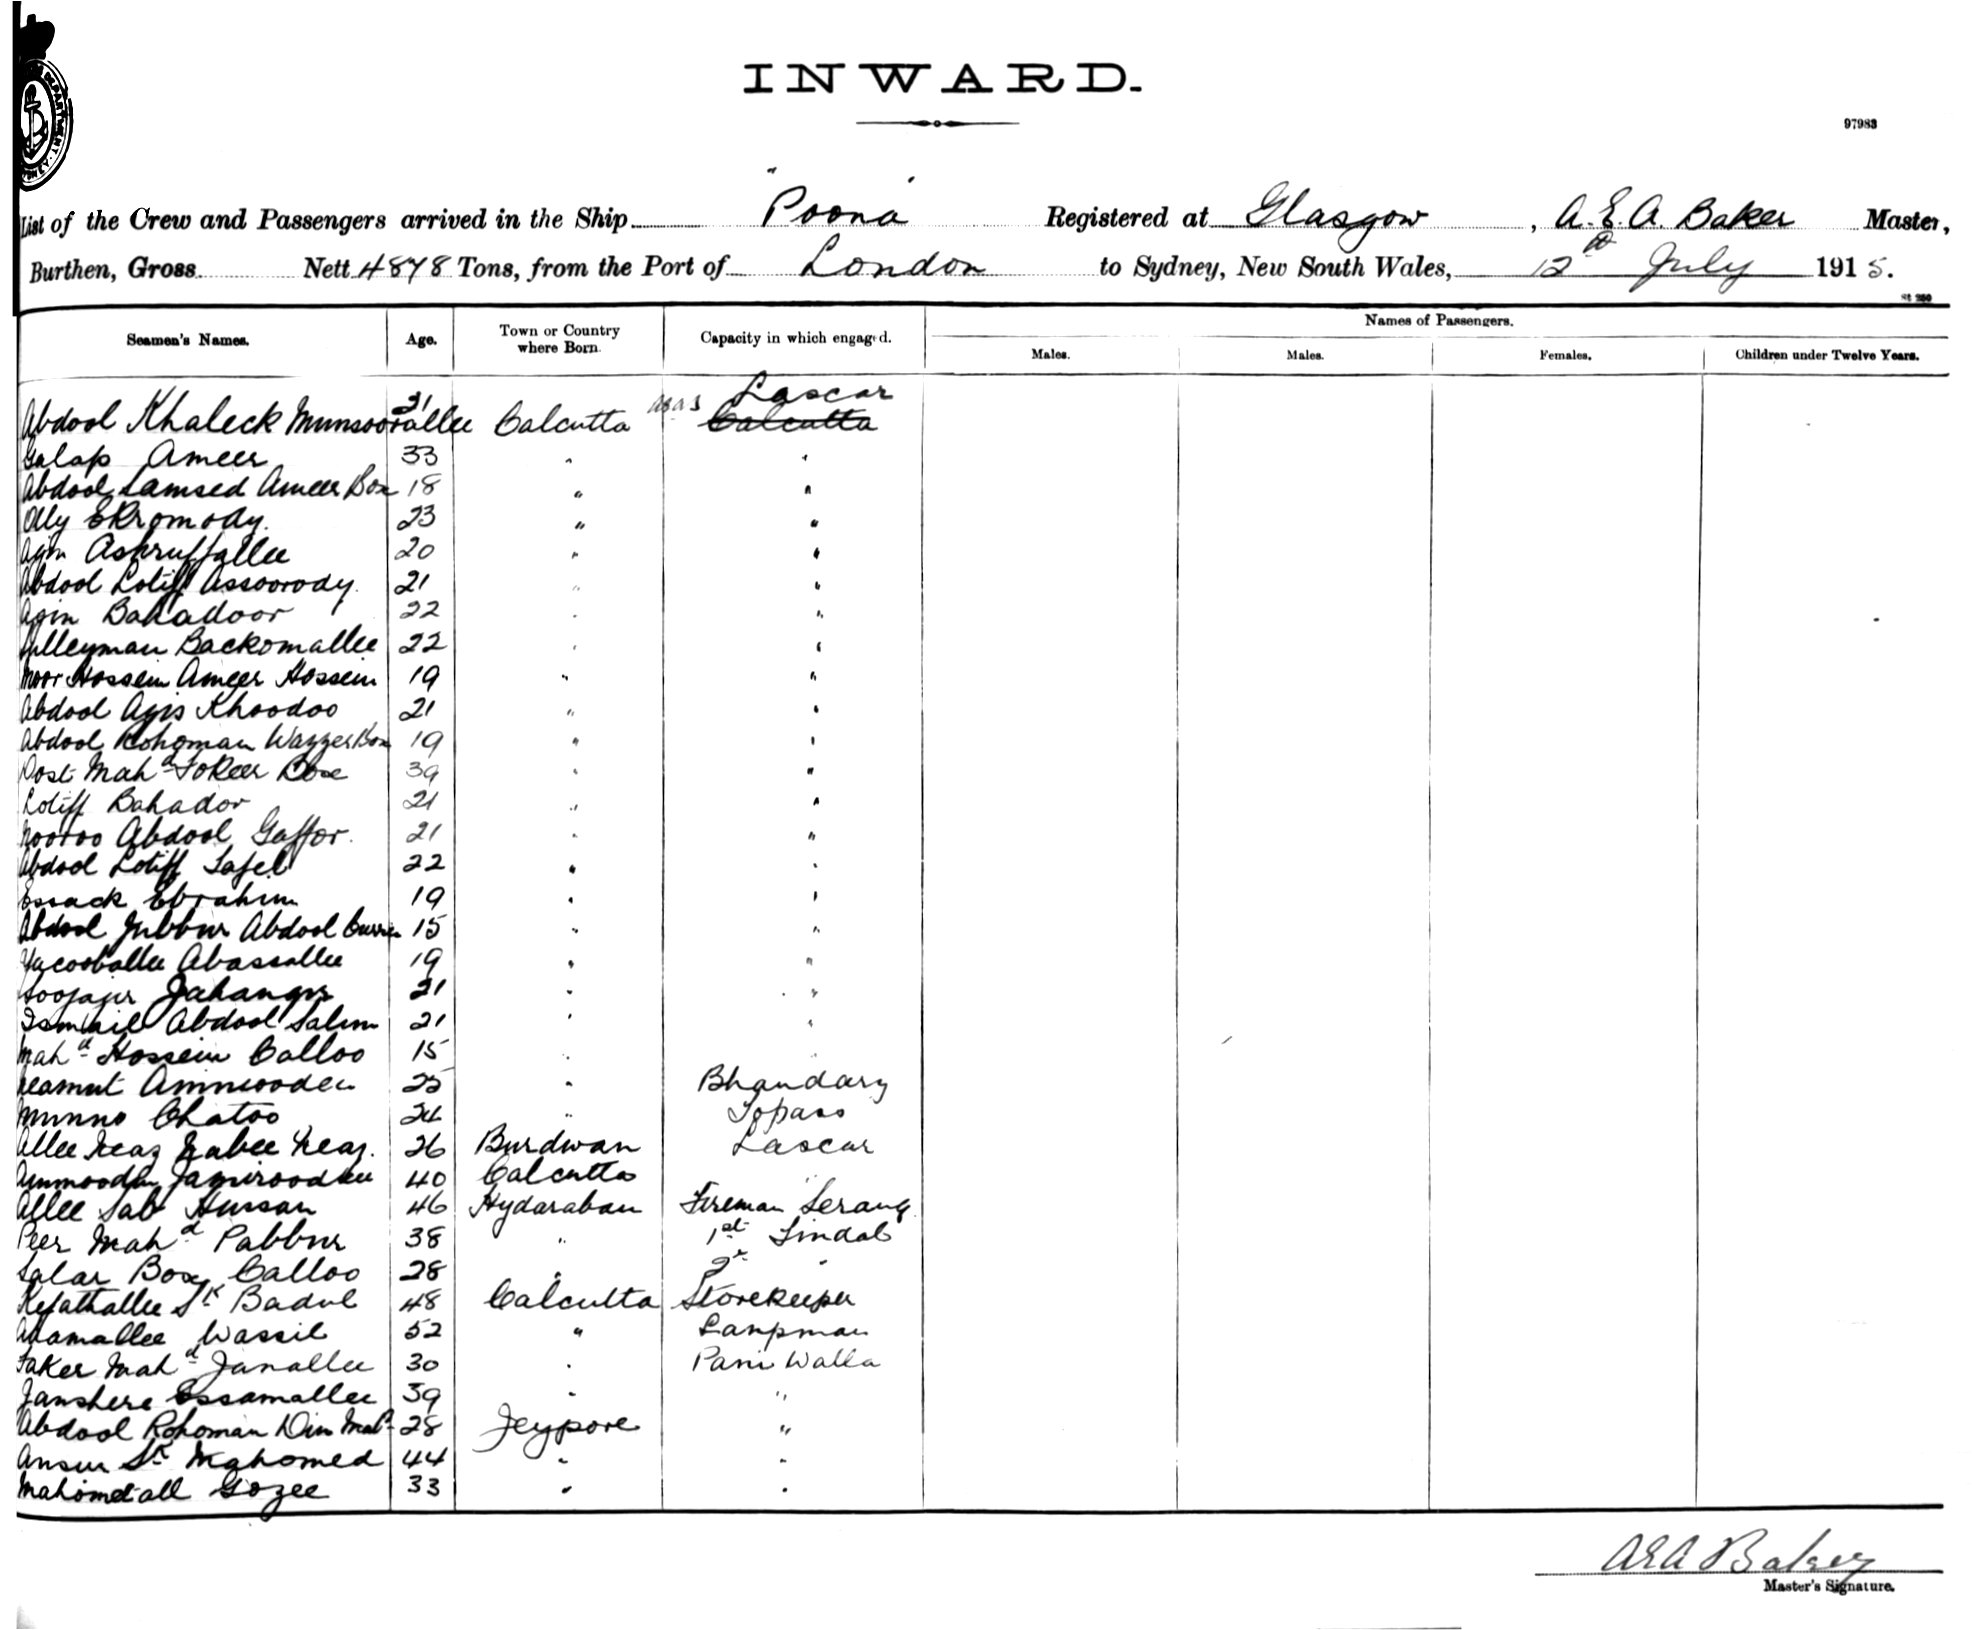 INWARD.
97983
List of the Crew and Passengers arrived in the Ship "Poona" Registered at Glasgow, A. E. A. Baker Master,
Burthen, Gross Nett 4878 Tons, from the Port of London to Sydney, New South Wales, 12th July 1915.
Names of Passengers.
Seamen's Names. Age. Town or Country where Born. Capacity in which engaged. Males. Males. Females. Children under Twelve Years.
Lascar
Abdool Khaleck Munsoorallee 21 Calcutta Calcutta
Golap Ameer 33 " "
Abdool Samsed Ameer Box 18 " "
Olly Ekromody. 23 " "
Ashruffallee 20 " "
Abdool Lotiff Assoorody. 21 " "
Bahadoor 22 " "
Sulleyman Backomallee 22 " "
Noor Hossein Ameer Hossein 19 " "
Abdool Azis Khoodoo 21 " "
Abdool Rohoman Wazzer Box 19 " "
Dost Mahd Fokeer Box 39 " "
Lotiff Bahador 21 " "
Nooroo Abdool Gaffor. 21 " "
Abdool Lotiff 22 " "
Essack Ebrahim 19 " "
Abdool Jubbur Abdool 15 " "
Yacooballee Abassallee 19 " "
Jahangir 21 " "
Ismail Abdool Salim 21 " "
Mahd Hossein Calloo 15 " "
25 " Bhandary
Munno Chatoo 24 " Topass
Allee Neaz Nabee Neaz. 26 Burdwan Lascar
40 Calcutta "
Allee Sab Hussan 46 Hydaraban Fireman Serang
Peer Mahd Pabbur 38 " 1st Tindal
Salar Box Calloo 28 " 2d "
Kefathallee Sk Badul 48 Calcutta Storekeeper
Adamallee Wassil 52 " Lampman
Faker Mahd Janallee 30 " Pani Walla
Janshere Essamallee 39 " "
Abdool Rohoman Din Mahd 28 Jeypore "
Ansur Sk Mahomed 44 " "
Mahomedall Gozee 33 " "
A E A Baker
Master's Signature.